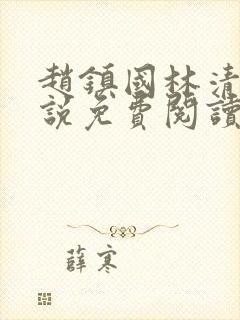 趙鎮國林清
說免費閱讀
薛寒